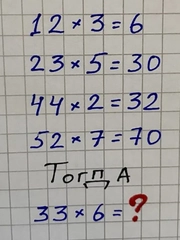 12 × 3 = 6
23 × 5 = 30
44 × 2 = 32
52 × 7 = 70
ТогдА
33 × 6 = ?